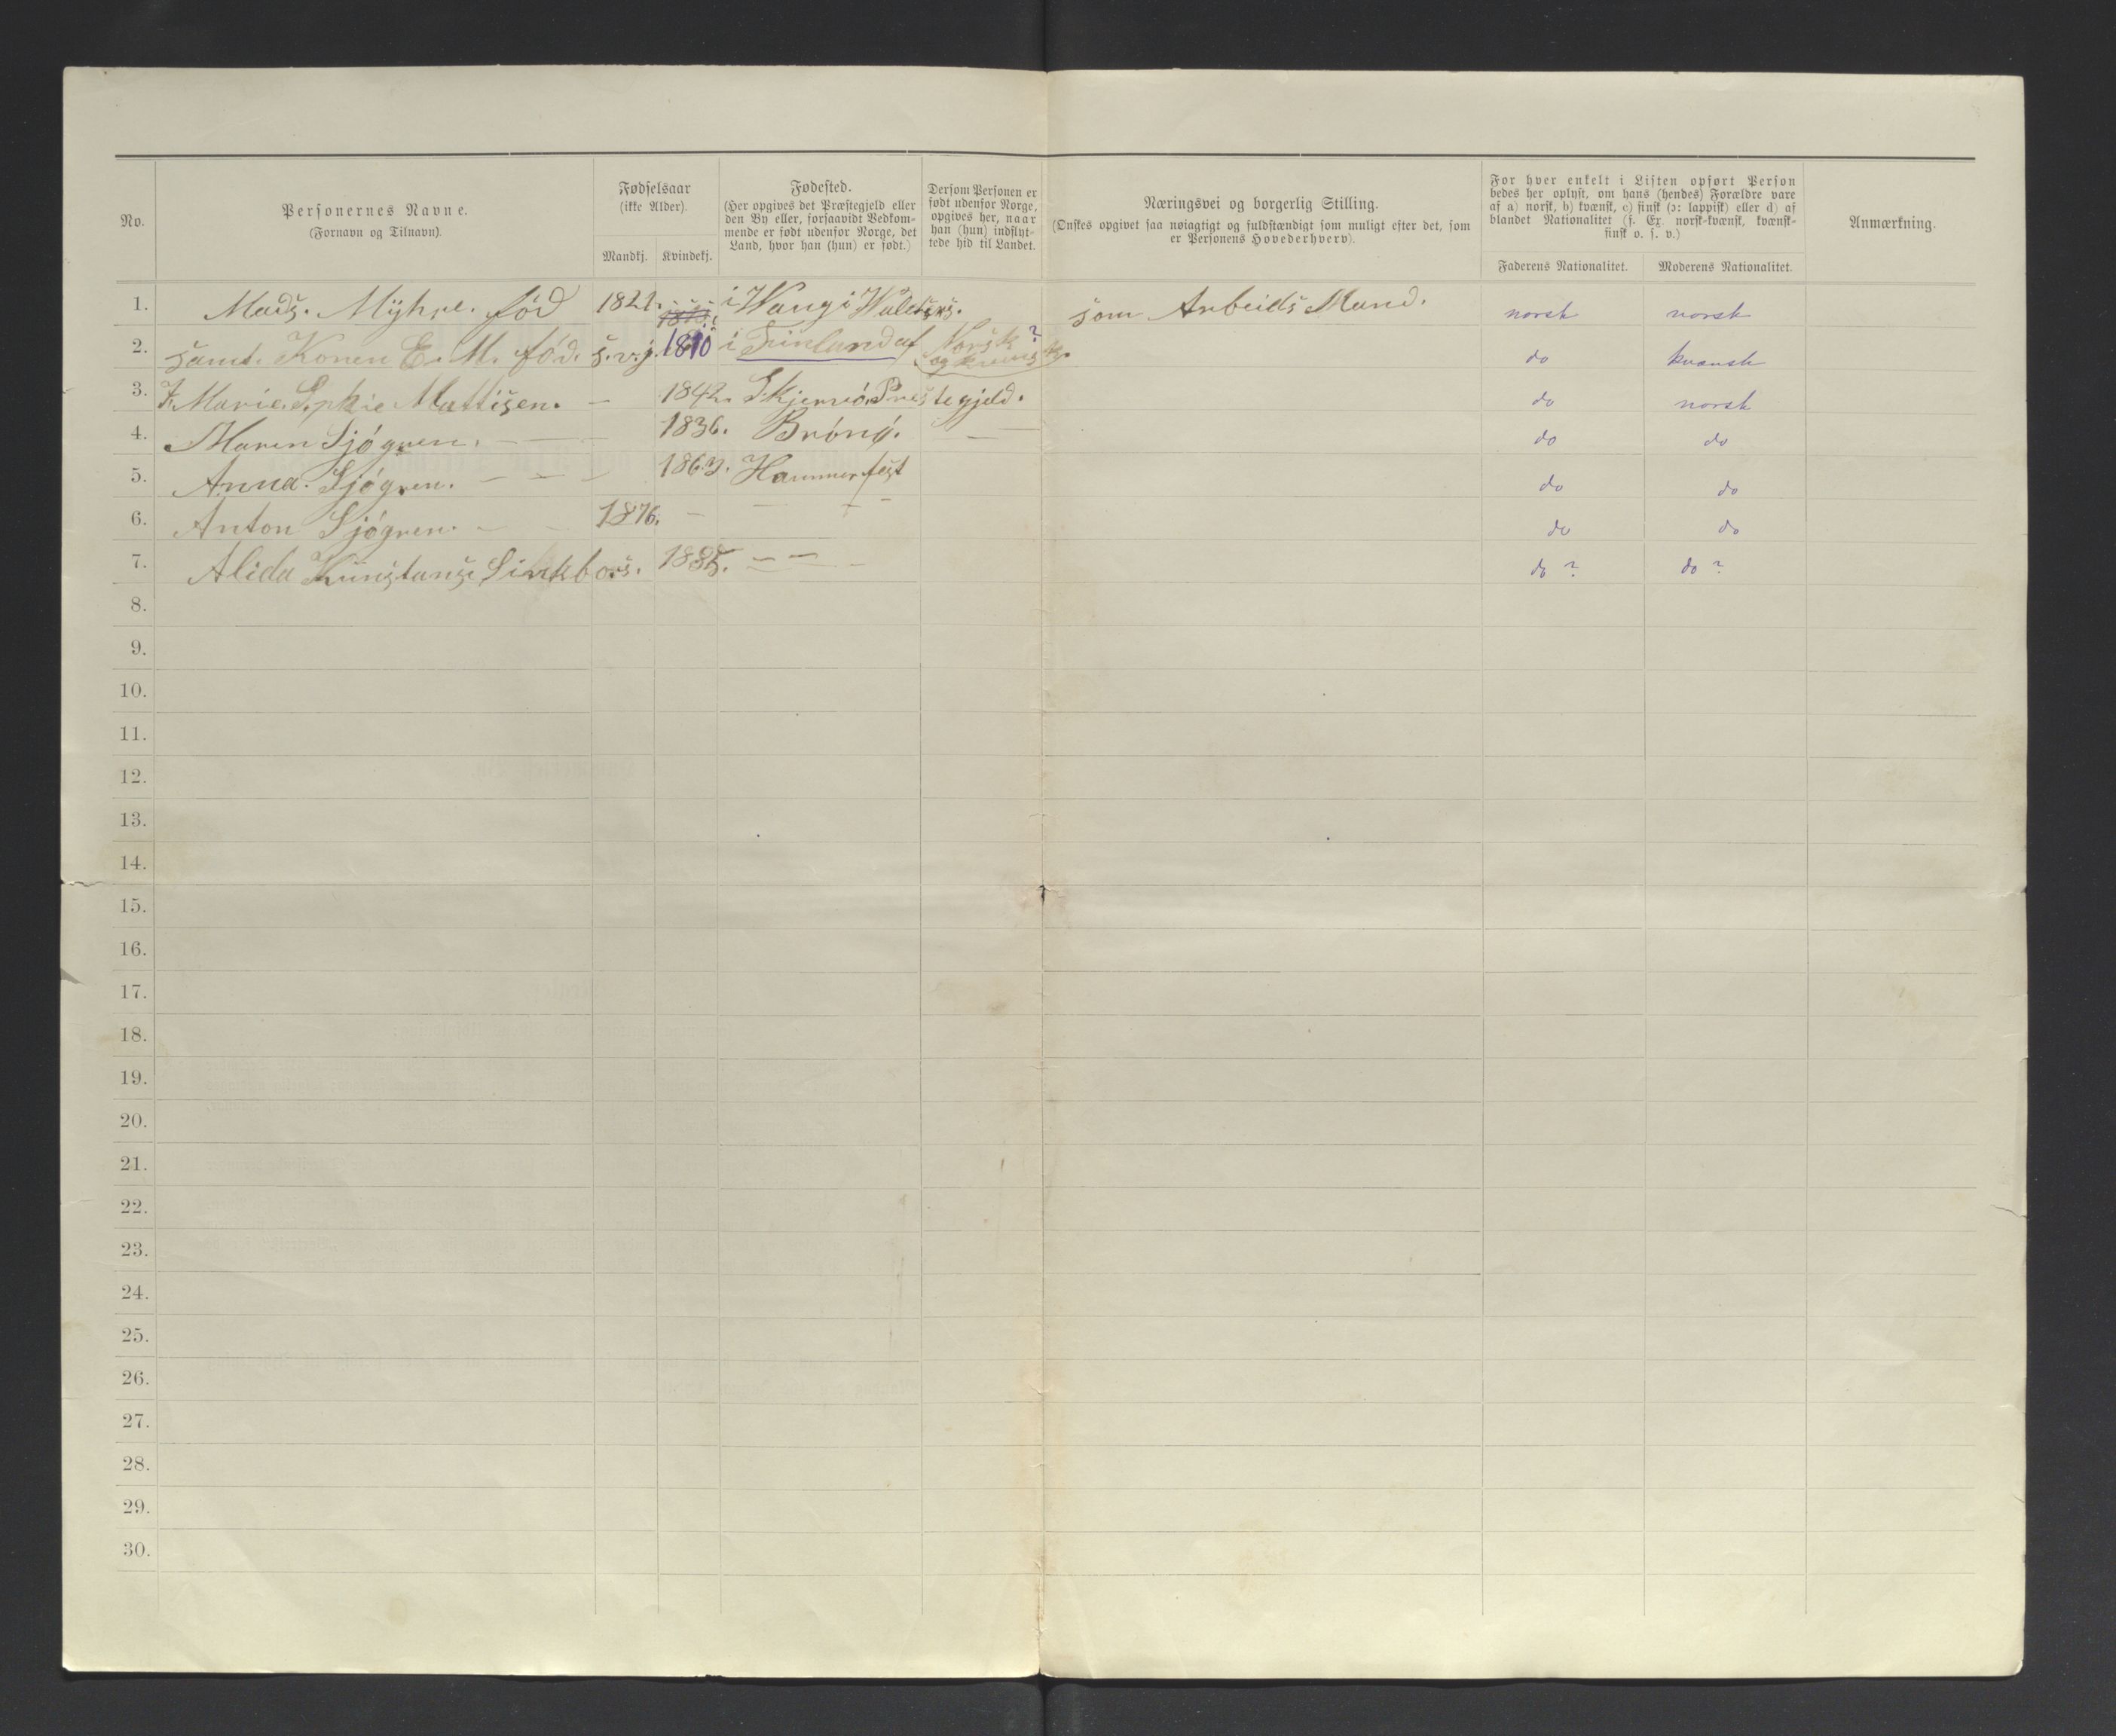 No.
Personernes Navne.
(Fornavn og Tilnavn).
Fødselsaar
(ikke Alder).
Mandkj. Kvindekj.
Fødested.
(Her opgives det Præstegjeld eller
den By eller, forsaavidt Vedkom-
mende er født udenfor Norge, det
Land, hvor han (hun) er født.)
Dersom Personen er
født udenfor Norge,
opgives her, naar
han (hun) indflyt-
tede hid til Landet.
Næringsvei og borgerlig Stilling.
(Ønskes opgivet saa nøiagtigt og fuldstændigt som muligt efter det, som
er Personens Hovederhverv).
For hver enkelt i Listen opført Person
bedes her oplyst, om hans (hendes) Forældre vare
af a) norsk, b) kvænsk, c) finsk (ɔ: lappisk) eller d) af
blandet Nationalitet (f. Ex. norsk-kvænsk, kvænsk-
finsk o. s. v.)
Faderens Nationalitet. Moderens Nationalitet.
Anmærkning.
1. Mads. Myhre. fød 1821. i Wang i Walders. som Arbeids Mand. norsk norsk
2. samt. Konen E. M. fød. 1810 i Finland af Norsk ? do kvænsk
og
3. Marie. Sophie Mattisen. — 1842. Skjervø Prestegjeld. do norsk
4. Maren Sjøgren. — 1836. Brønø. — do do
5. Anna. Sjøgren. — 1863. Hammerfest do do
6. Anton Sjøgren. — 1876. — — — do do
7. Alida 1885. — — do ? do ?
8.
9.
10.
11.
12.
13.
14.
15.
16.
17.
18.
19.
20.
21.
22.
23.
24.
25.
26.
27.
28.
29.
30.